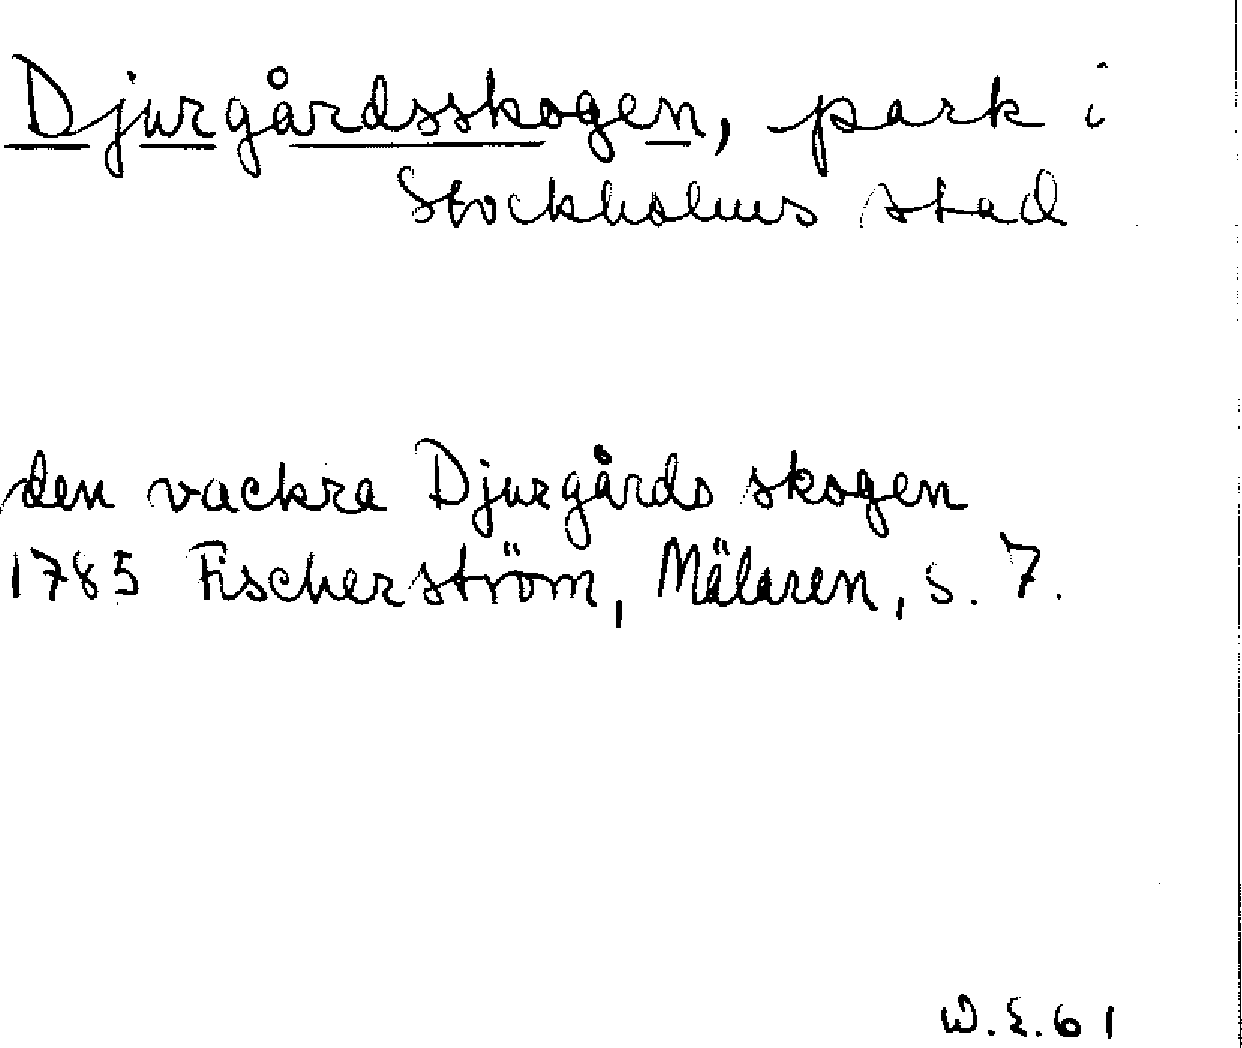 Djurgårdsskogen, park i
Stockholms stad
den vackra Djurgårds skogen
1785 Fischerström, Mälaren, s. 7.
W.E.61